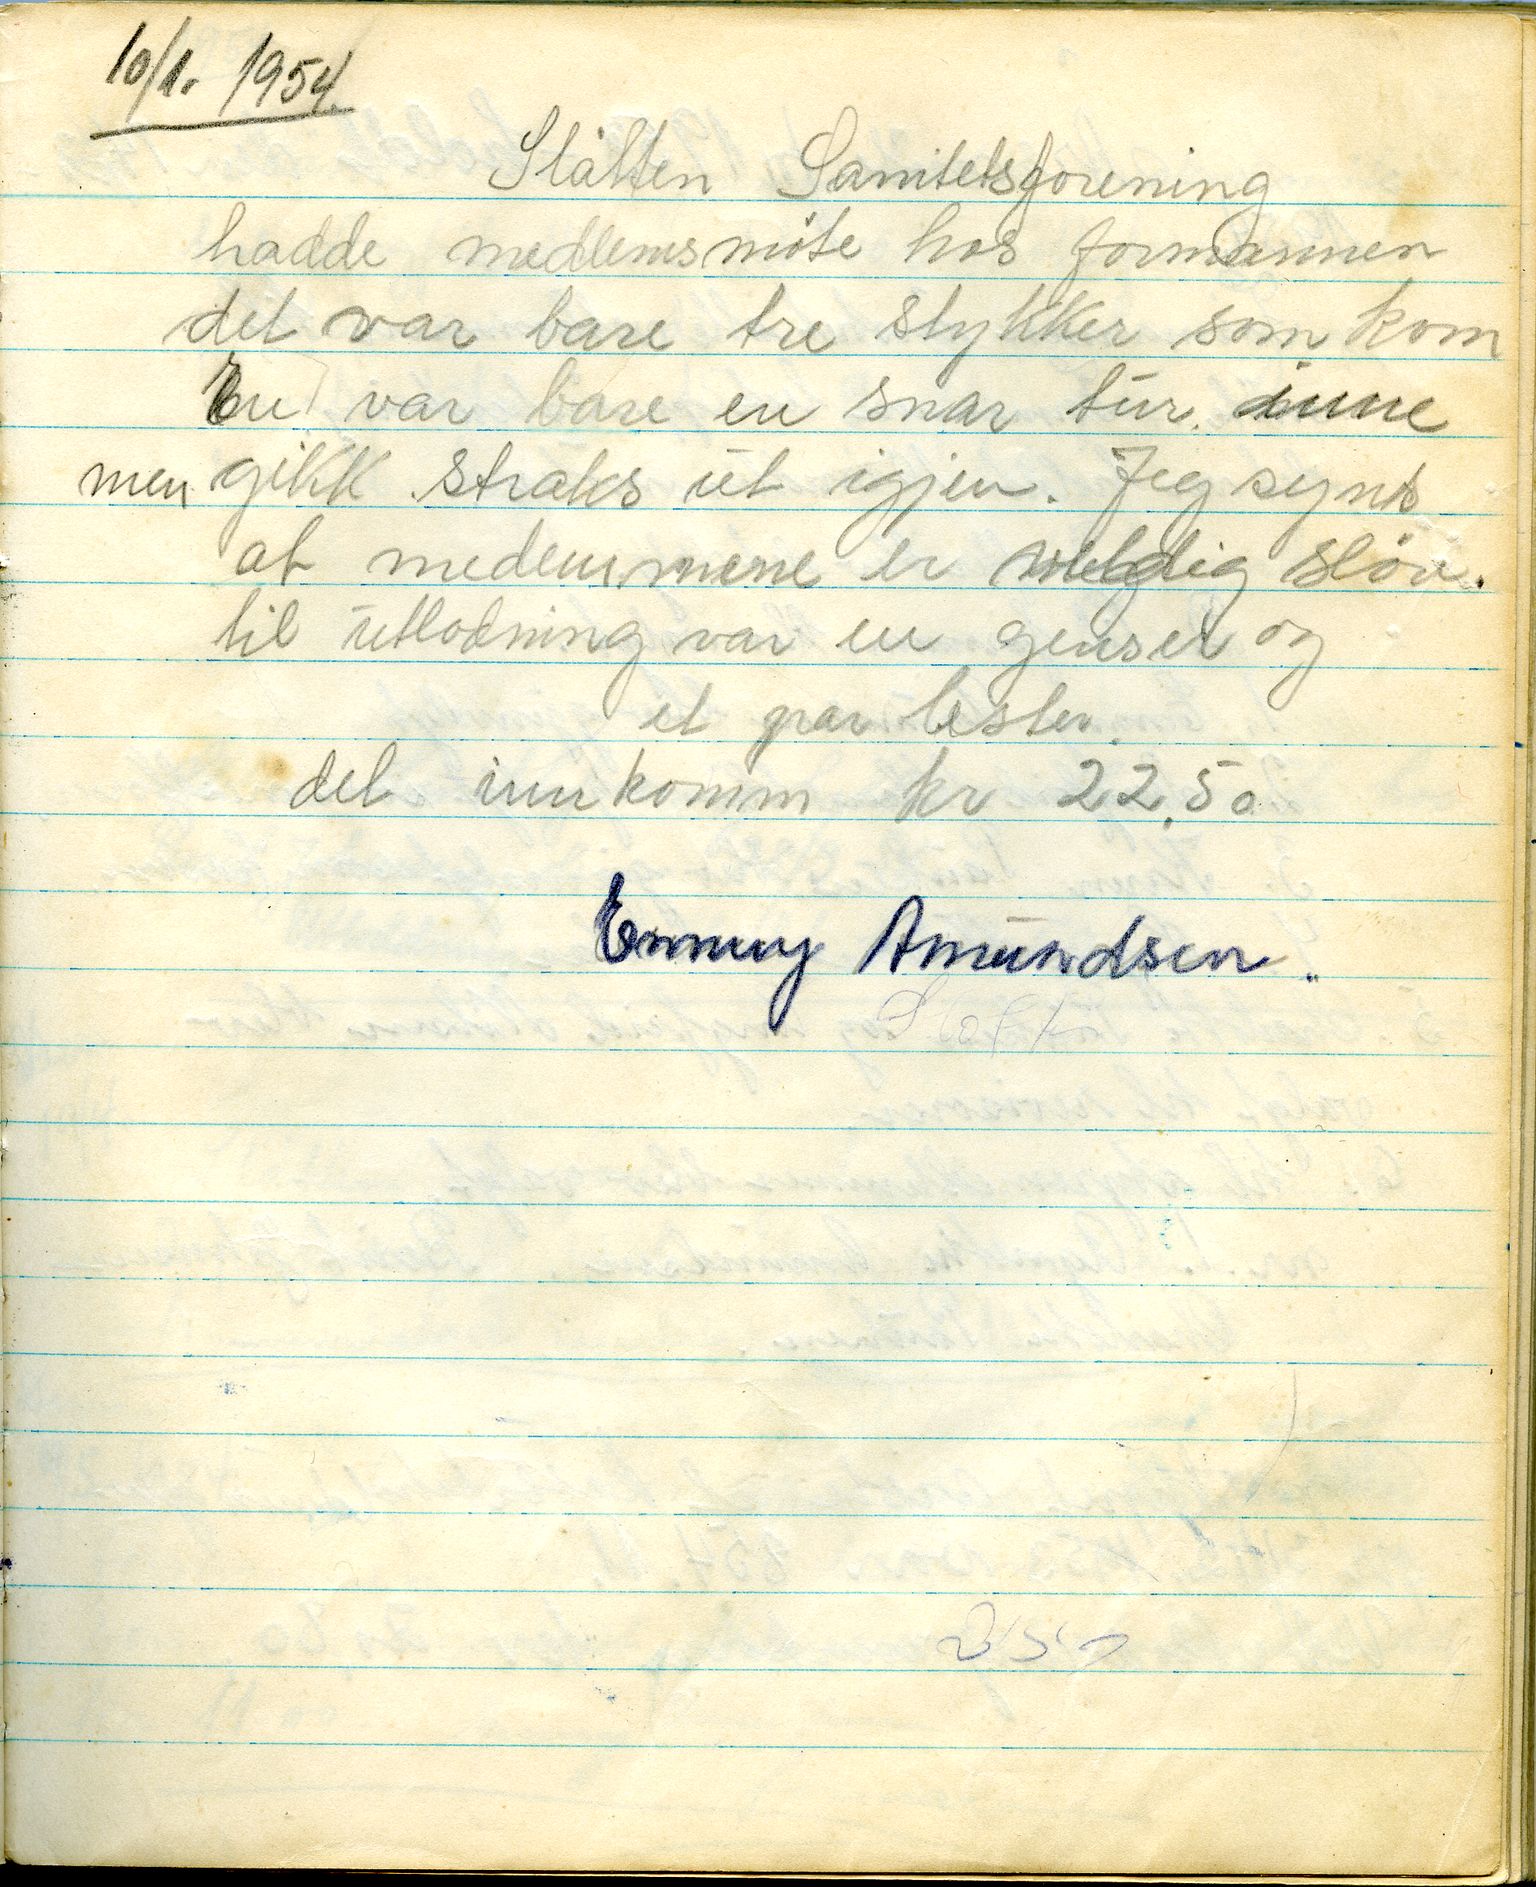 10/1. 1954
Slåtten Sanitetsforening
hadde medlemsmöte hos formannen
det var bare tre stykker som kom
En var bare en snar tur. inne
men gikk straks ut igjen. Jeg synts
at medemmene er veldig slöv.
til utlodning var en genser og
et par lester.
det innkomm kr 22.50
Emmy Amundsen.